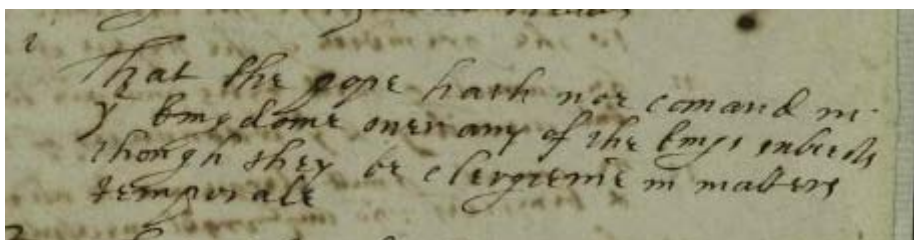 That the pope hath noe comand in
y kingdome over any of the kings subiects
though they be clergieme in matters
temporale